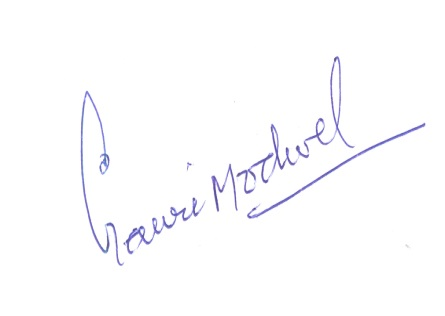 Gauri Modwel